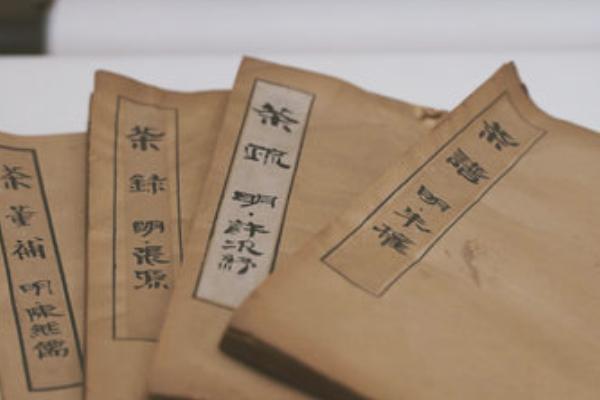 茶譜 明·朱權
茶疏 明·許次紓
茶錄 明·張源
茶董補 明陳繼儒